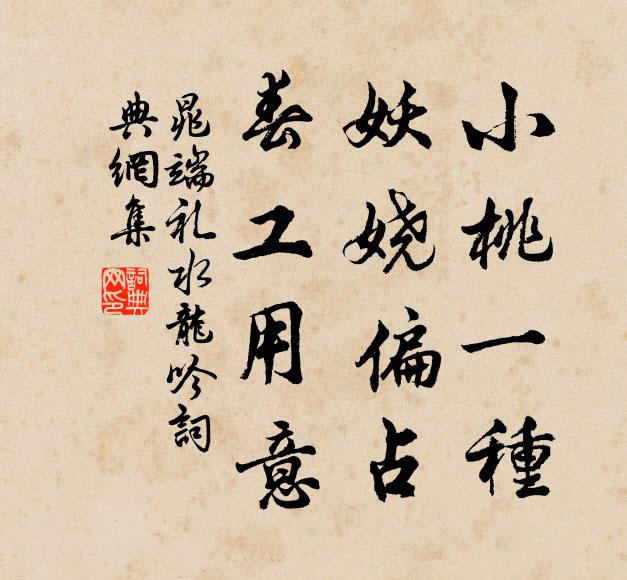 小桃一種
妖嬈偏占
春工用意
晁端礼水龍吟詞
典網集
詞典
网印